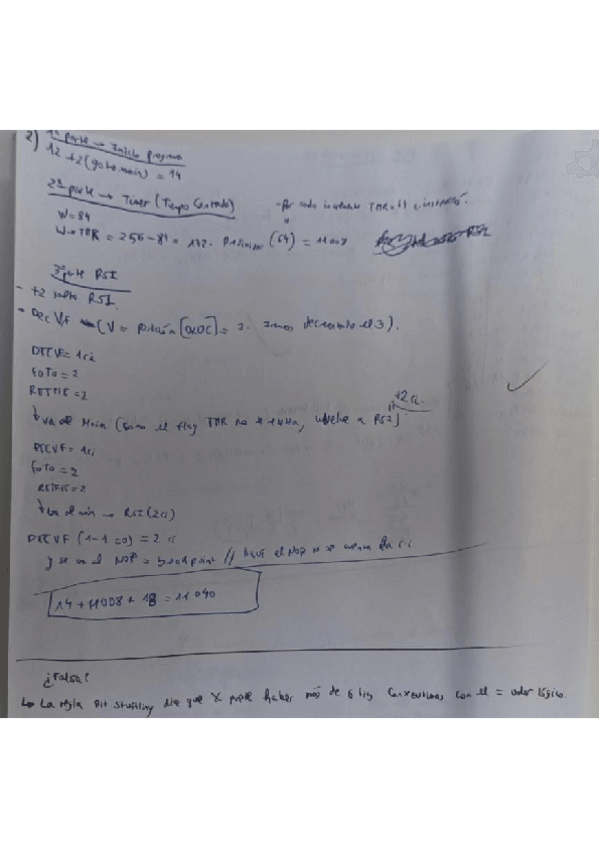 2) 1ª parte → Inicio programa
12 + 2 (goto main) = 14
2ª parte → Timer (Tiempo Contado)
- Por cada incremento TMR = 64 c. instrucción.
W = 84
W → TMR = 256 - 84 = 172. Prescaler (64) = 11008
3ª parte RSI
- +2 salto RSI.
- Dec V,F (V = posición [0x0C] = 3. Iremos decrementando el 3).
DECVF = 1ci
GOTO = 2
RETFIE = 2
+2 ci.
↳ va al Main (como el flag TMR no se, vuelve a RSI)
DECVF = 1ci
GOTO = 2
RETFIE = 2
↳ va al main → RSI (2ci)
DECVF (1-1=0) = 2 ci
y se va al NOP = breakpoint // Aquí el NOP no se cuenta ci
14 + 11008 + 18 = 11040
¿Falsa?
↳ La regla Bit Stuffing dice que X puede haber más de 6 bits consecutivos con el = valor lógico.